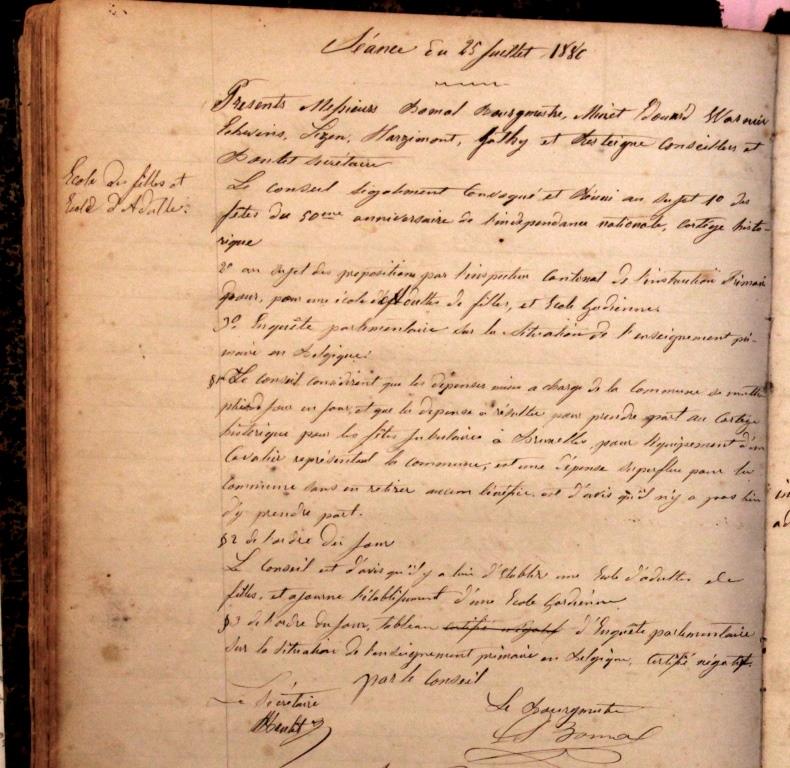 Séance du 25 Juillet 1880
Presents Messieurs Bomal Bourgmestre, Minet Edouard Warnier
Echevins, Lizen, Harzimont, Gathy et Resteigne Conseillers et
secrétaire
Ecole des filles et
Ecole d'Adulte:
Le conseil légalement convoqué et Réuni au sujet 1° des
fêtes du 50me anniversaire de l'indépendance nationale, Cortège histo-
rique
2° au sujet des propositions par l'inspecteur Cantonal de l'instruction Primair
pour une école d'Adultes de filles, et Ecole Gardienne.
3° Enquête parlementaire sur la situation de l'enseignement pri-
maire en Belgique.
§1 Le conseil considérant que les dépenses mises a charge de la Commune se multi
plient jour en jour, et que la dépense a résulter pour prendre part au Cortège
historique pour les fêtes jubulaires à Bruxelles, pour l'équipement d'un
Cavalier représentant la commune, est une dépense superflue pour la
Commune sans en retirer aucun bénéfice est d'avis qu'il n'y a pas lieu
d'y prendre part.
§2 de l'ordre du jour
Le Conseil est d'avis qu'il y a lieu d'Etablir une Ecole d'adultes de
filles, et ajourne l'établissement d'une Ecole Gardienne
§3 de l'ordre du jour, tableau certifié négatif d'Enquête parlementaire
sur la situation de l'enseignement primaire en Belgique, certifié négatif.
par le Conseil
Le Sécrétaire
Le Bourgmestre
Bomal